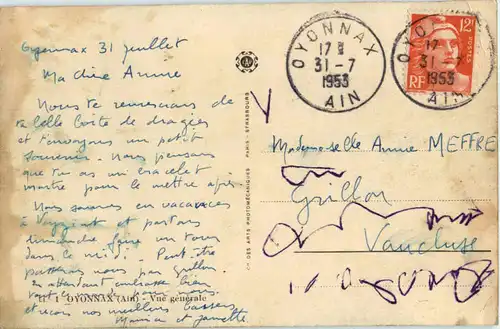 Oyonnax 31 juillet
Ma chère Annie
Nous te remercions de
ta belle boîte de dragées
et t'envoyons un petit
souvenir. Nous pensons
que tu as un bracelet
montre pour le mettre après.
Nous sommes en vacances
à et partons
dimanche faire un tour
dans le midi. Peut-être
passerons nous par Grillon.
en attendant embrasse bien
tout le pour nous.
et reçois nos meilleurs baisers
Maurice et Jeannette
1 OYONNAX (Ain) - Vue générale
Cie DES ARTS PHOTOMÉCANIQUES PARIS - STRASBOURG
OYONNAX
17 H
31-7
1953
AIN
OYO
17
31-7
1953
AIN
12F
POSTES
RF
Mademoiselle Annie MEFFRE
Grillon
Vaucluse